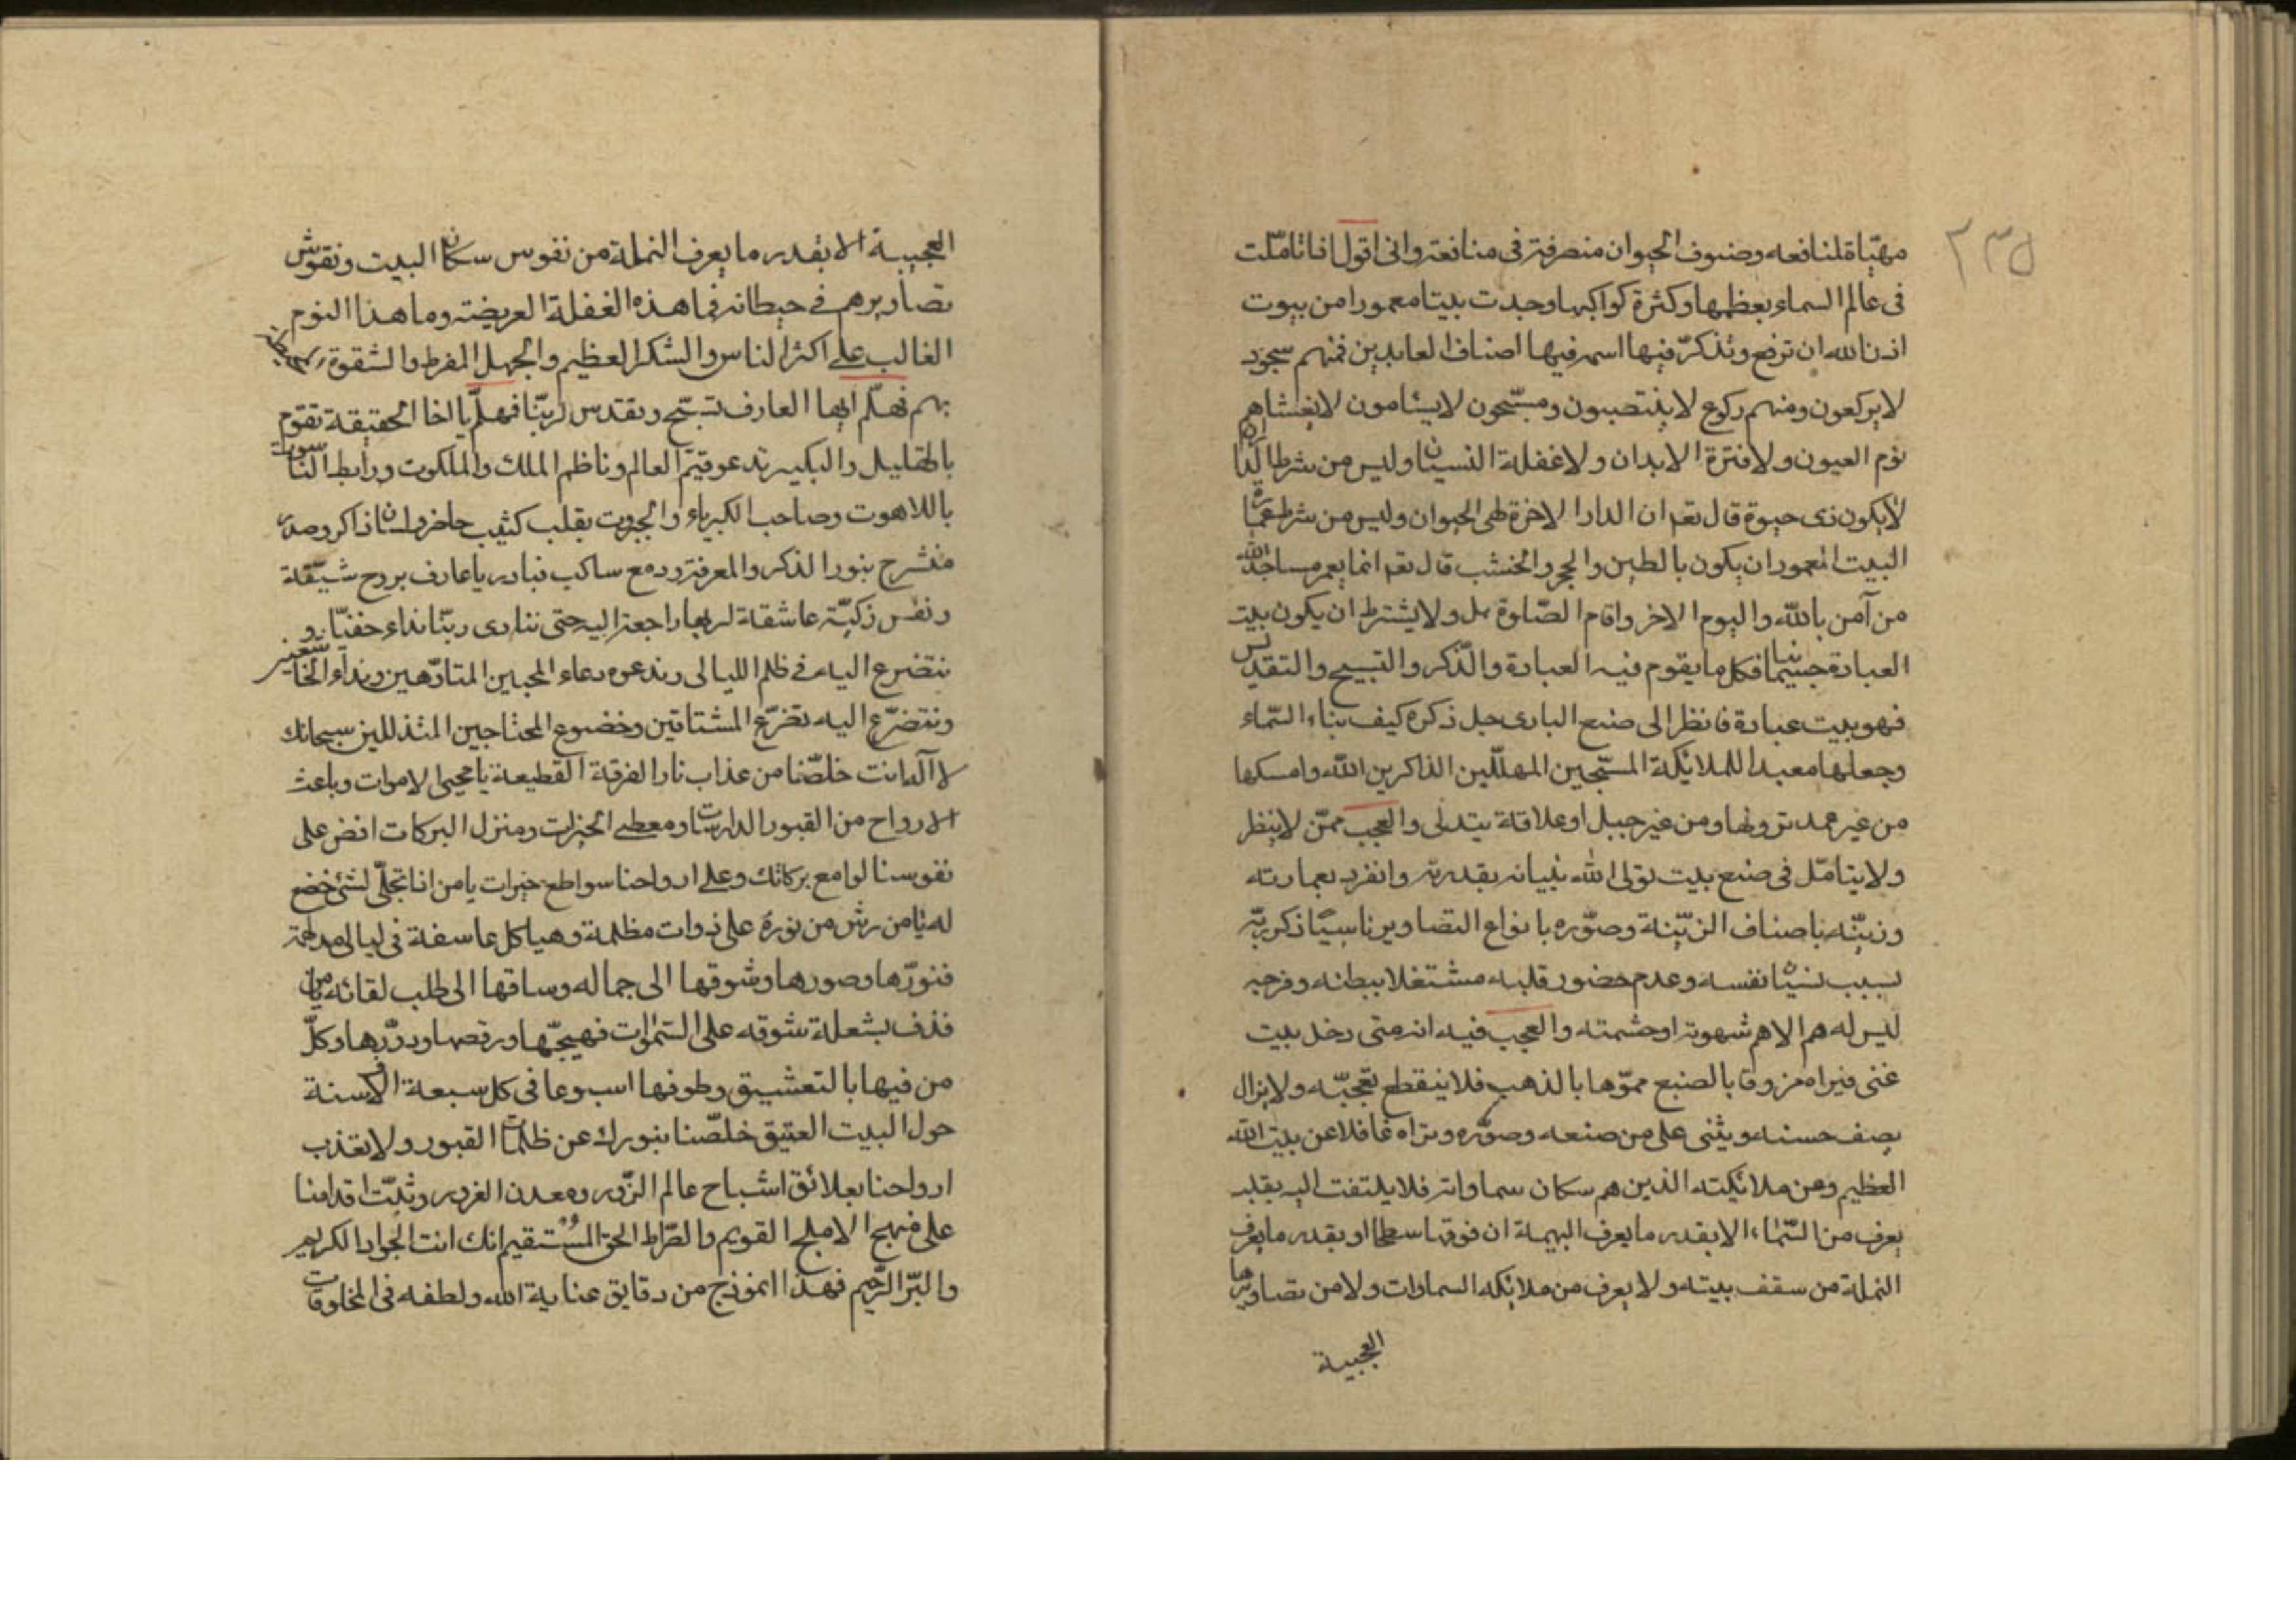 ٢٣٥
مهيّاة لمنافعه وصنوف الحيوان متصرفة فى منافعه وانى اقول اذا تاملت
فى عالم السماء بعظمها وكثرة كواكبها وجدت بيتا معمورا من بيوت
اذن الله ان ترفع ويذكر فيها اسمه فيها اصناف العابدين فمنهم سجود
لا يركعون ومنهم ركوع لا ينتصبون ومسبّحون لا يسئامون لا يغشاهم
نوم العيون ولا فترة الابدان ولا غفلة النسيان وليس من شرط الدار ان
لا يكون ذى حيوة قال تعه ان الدار الاخرة لهى الحيوان وليس من شرط عمارة
البيت المعمور ان يكون بالطين والحجر والخشب قال تعه انما يعمر مساجد الله
من آمن بالله واليوم الاخر واقام الصّلوة بل ولا يشترط ان يكون بيت
العبادة جسمانيا فكل ما يقوم فيه العبادة والذّكر والتسبيح والتقديس
فهو بيت عبادة فانظر الى صنع البارى جل ذكره كيف بناء السّماء
وجعلها معبدا للملائكة المسبّحين المهلّلين الذاكرين الله وامسكها
من غير عمد ترونها ومن غير حبل او علاقة يتدلى والعجب ممّن لا ينظر
ولا يتامّل فى صنع بيت تولى الله بنيانه بقدرته وانفرد بعمارته
وزيّنه باصناف الزّينة وصوّره بانواع التصاوير ناسيًا ذكر ربّه
بسبب نسيان نفسه وعدم حضور قلبه مشتغلا ببطنه وفرجه
ليس له هم الا هم شهوته او حشمته والعجب فيه انه متى دخل بيت
غنى فيراه مزوقا بالصنع مموّها بالذهب فلا ينقطع تعجّبه ولا يزال
يصف حسنه ويثنى على من صنعه وصوّره وتراه غافلا عن بيت الله
العظيم وعن ملائكته الذين هم سكان سماواته فلا يلتفت اليه بقلبه
يعرف من السّماء الا بقدر ما يعرف البهيمة ان فوقها سطحا او بقدر ما يعرف
النملة من سقف بيته ولا يعرف من ملائكه السماوات ولا من تصاويرها
العجيبة
العجيبة الا بقدر ما يعرف النملة من نفوس سكان البيت ونقوش
تصاويرهم فى حيطانه فما هذه الغفلة العريضة وما هذا النوم
الغالب على اكثر الناس والسّكر العظيم والجهل المفرط والشقوة
بهم فهلّم ايها العارف تسبّح وتقدس لربّنا فهلّم يا اخا الحقيقة تقوم
بالتهليل والتكبير ندعو قيّم العالم وناظم الملك والملكوت ورابط الناسوت
باللاهوت وصاحب الكبرياء والجبروت بقلب كئيب حاضر ولسان ذاكر وصدر
منشرح بنور الذكر والمعرفة ودمع ساكب فبادر يا عارف بروح شيّقة
ونفس زكيّة عاشقة لربها راجعة اليه حتى ننادى ربّنا نداء خفيّا و
نتضرع اليه فى ظلم الليالى وندعوه دعاء المحبين المتاوّهين ونداء الخاشعين
ونتضرّع اليه تضرّع المشتاقين وخضوع المحتاجين المتذللين سبحانك
لا آله انت خلّصنا من عذاب نار الفرقة القطيعة يا محيى الاموات وباعث
الارواح من القبور الدارسات ومعطى الخيرات ومنزل البركات افض على
نفوسنا لوامع بركاتك وعلى ارواحنا سواطع خيرات يا من اذا تجلّى لشئ خضع
له يا من رش من نوره على ذوات مظلمة وهياكل عاسفة فى ليالى مدلهمة
فنوّرها وصورها وشوقها الى جماله وساقها الى طلب لقائه يا من
قذف بشعلة شوقه على السّموات فهيّجها ورقصها ودوّرها وكلّ
من فيها بالتعشيق وطوفها اسبوعا فى كل سبعة الاف سنة
حول البيت العتيق خلّصنا بنورك عن ظلمات القبور ولا تعذب
ارواحنا بعلائق اشباح عالم الزّور ومعدن الغرور وثبّت اقدامنا
على منهج الاملج القويم والصّراط الحق المستقيم انك انت الجواد الكريم
والبرّ الرّحيم فهذا انموذج من دقايق عناية الله ولطفه فى المخلوقات